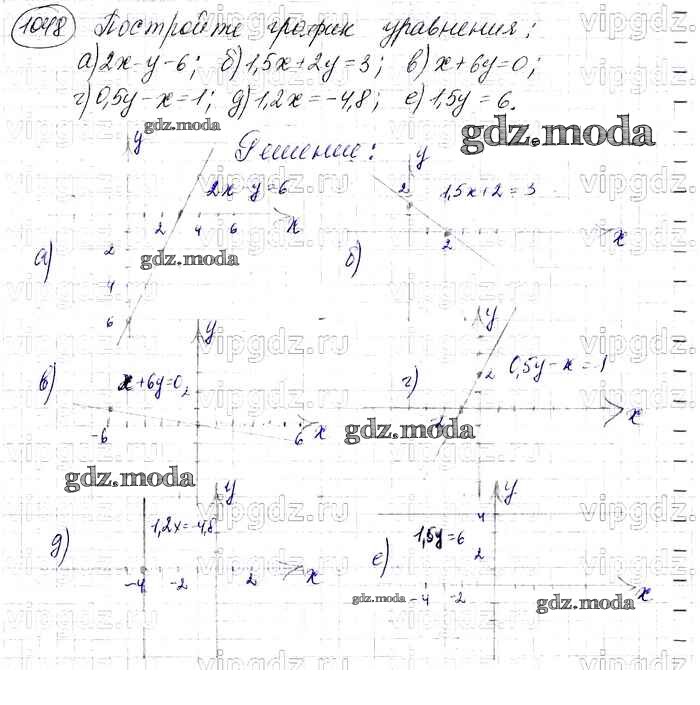 1048 Постройте график уравнения:
а) 2x-y-6; б) 1,5x+2y=3; в) x+6y=0;
г) 0,5y-x=1; д) 1,2x=-4,8; е) 1,5y=6.
gdz.moda gdz.moda
Решение:
y y
2x y=6 2 1,5x+2=3
2 4 6 x 2 x
а) 2 gdz.moda б)
4
6
y y
в) x+6y=0 2 г) 2 0,5y-x=1
-6 6 x gdz.moda x
gdz.moda
y y
д) 1,2x=-4,8 е) 1,5y=6 4
2
-4 -2 2 x gdz.moda -4 -2 gdz.moda x
vipgdz.ru